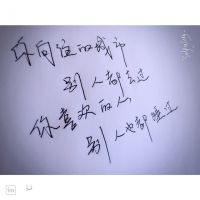 你向往的城市
别人都去过
你喜欢的人
别人也都睡过